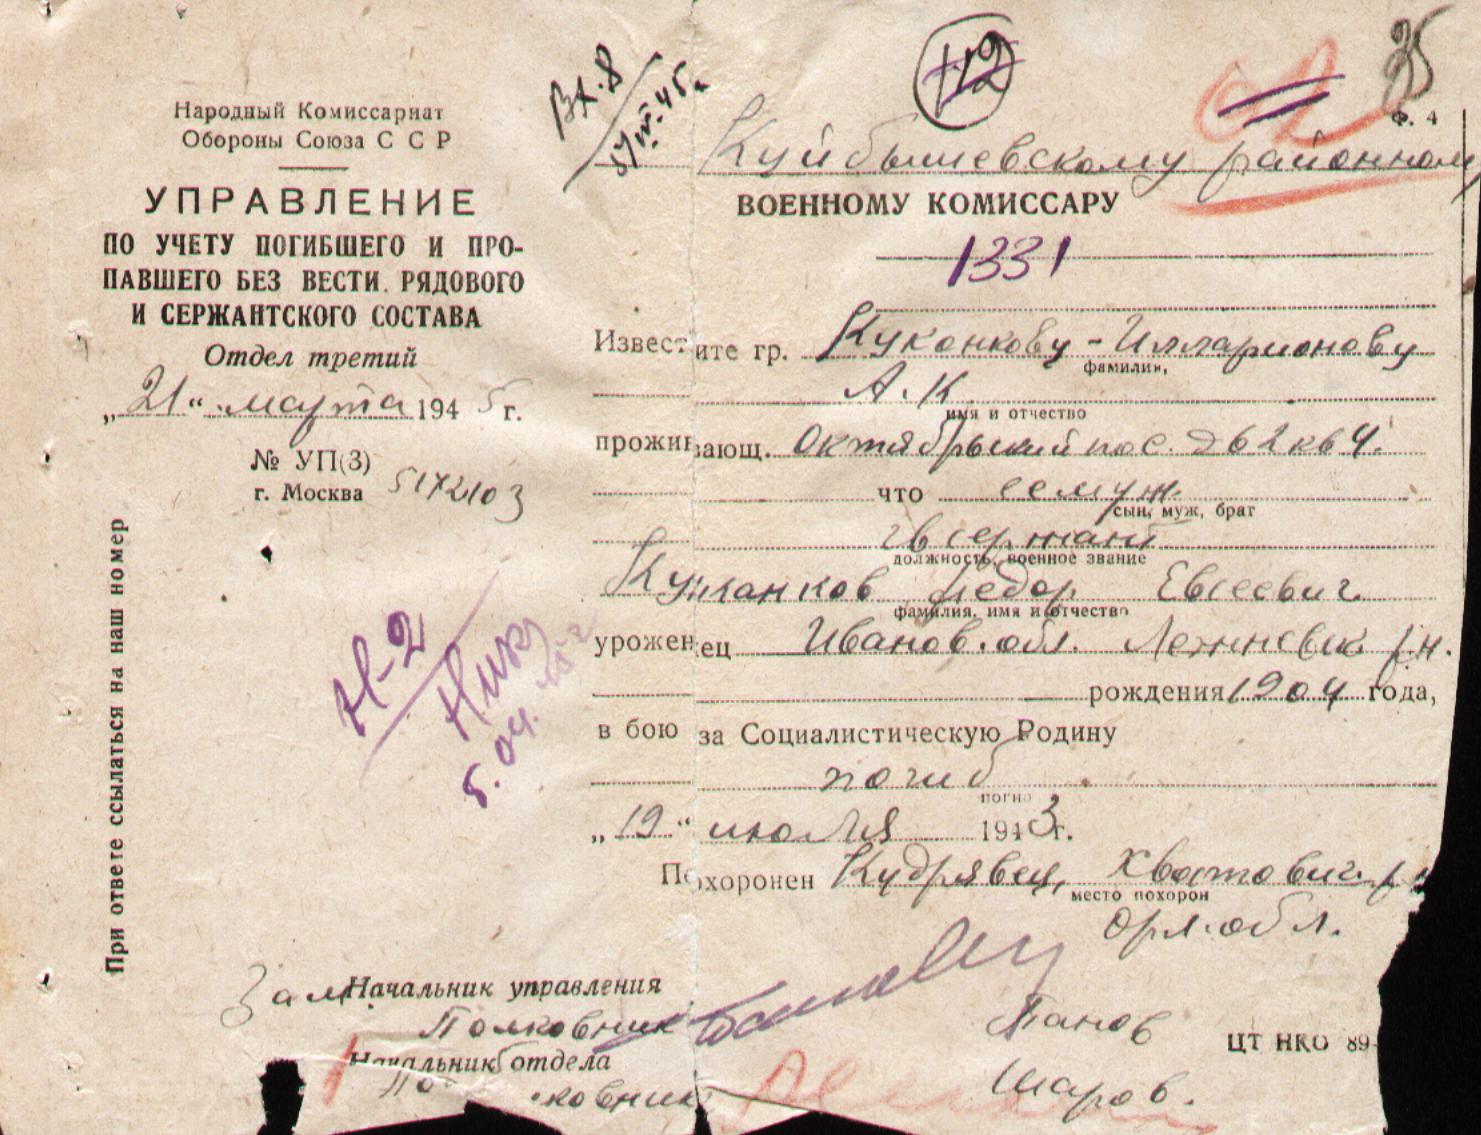 Народный Комиссариат
Обороны Союза С С Р
УПРАВЛЕНИЕ
ПО УЧЕТУ ПОГИБШЕГО И ПРО-
ПАВШЕГО БЕЗ ВЕСТИ РЯДОВОГО
И СЕРЖАНТСКОГО СОСТАВА
Отдел третий
„21“ марта 1945 г.
№ УП(3)
г. Москва 5172103
При ответе ссылаться на наш номер
Вх. 8
5/IV-45г
112
35
Ф. 4
Куйбышевскому районном
ВОЕННОМУ КОМИССАРУ
1331
Известите гр. Куконкову-Илларионову
фамилия,
А.К
имя и отчество
проживающ. Октябрьский пос. д 62 кв 4.
что ее муж
сын, муж, брат
гв сержант
должность, военное звание
Федор Евсеевич
фамилия, имя и отчество
уроженец Иванов. обл. Лежневск р.н.
рождения 1904 года,
в бою за Социалистическую Родину
погиб
погиб
„19“ июля 1943 г.
Похоронен Кудрявец, Хватович. р н
место похорон
Орл. обл.
Н-2
5.04.
Зам Начальник управления
Полковник Панов
ЦТ НКО 89-
Начальник отдела
Шаров.